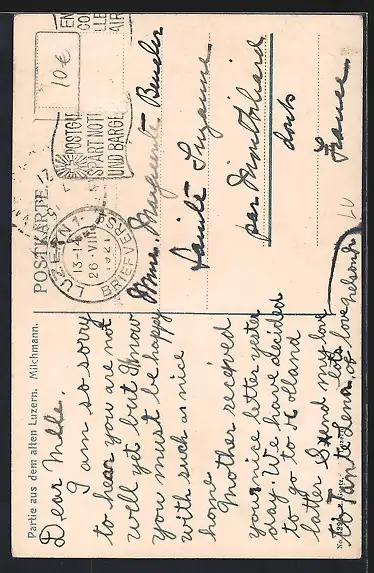 Partie aus dem alten Luzern. Milchmann.
Dear Melle.
I am so sorry
to hear you are not
well yet but I know
you must be happy
with such a nice
home
Mother recieved
your nice letter yester
day. We have decided
to go to Holland
latter I send my love
to Tante Lena lots
of love
POSTKARTE.
LUZERN 1
13-14
26 VII
BRIEFVERS
POSTGI
SPART NOTE
UND BARGE
10 €
Mme. Marguerite Beucler
Sainte Suzanne
par Montbéliard
doubs
France